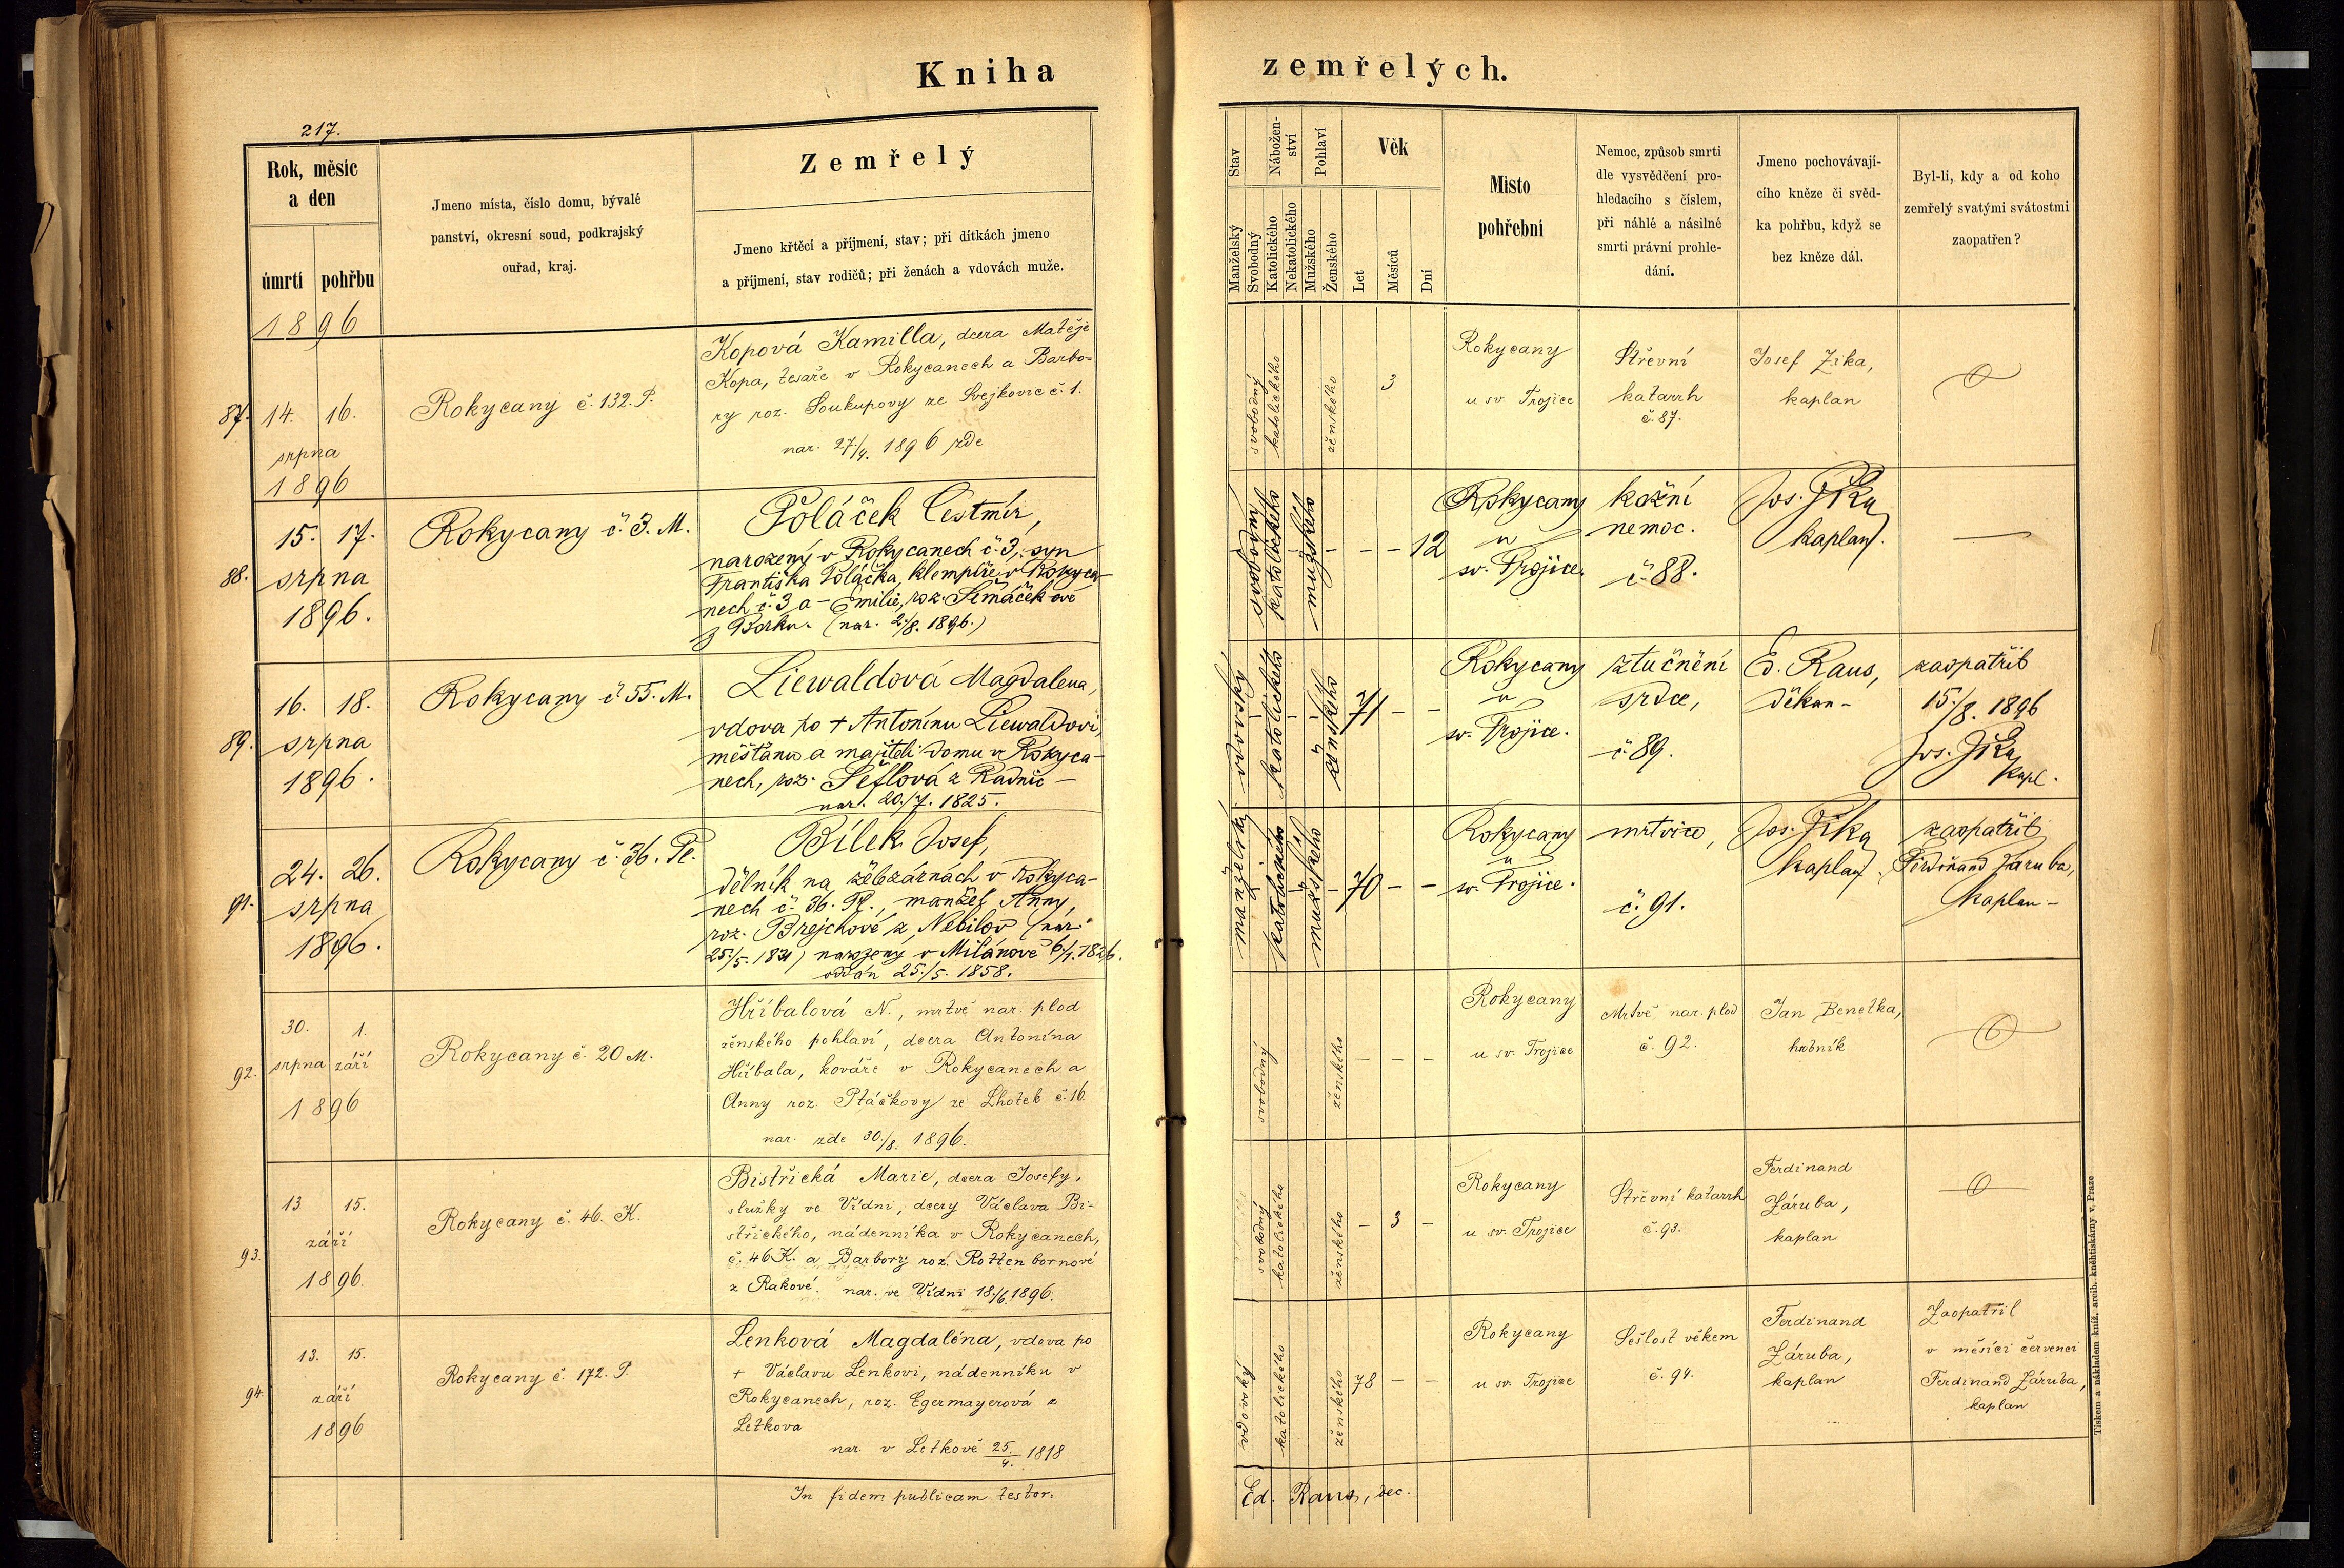 Kniha
zemřelých.
217.
Rok, měsíc
a den
úmrtí
pohřbu
Jmeno místa, číslo domu, bývalé
panství, okresní soud, podkrajský
ouřad, kraj.
Zemřelý
Jmeno křtěcí a příjmení, stav; při dítkách jmeno
a příjmení, stav rodičů; při ženách a vdovách muže.
Stav
Nábožen-
ství
Pohlaví
Věk
Manželský
Svobodný
Katolického
Nekatolického
Mužského
Ženského
Let
Měsíců
Dní
Místo
pohřební
Nemoc, způsob smrti
dle vysvědčení pro-
hledacího s číslem,
při náhlé a násilné
smrti právní prohle-
dání.
Jmeno pochovávají-
cího kněze či svěd-
ka pohřbu, když se
bez kněze dál.
Byl-li, kdy a od koho
zemřelý svatými svátostmi
zaopatřen?
1896
87. 14. 16.
srpna
1896
Rokycany č. 132. P.
Kopová Kamilla, dcera Matěje
Kopa, tesaře v Rokycanech a Barbo-
ry roz. Soukupovy ze Svejkovic č. 1.
nar. 27./4. 1896 zde
svobodný
katolického
ženského
3
Rokycany
u sv. Trojice
Střevní
katarrh
č. 87.
Josef Zika,
kaplan
88. 15. 17.
srpna
1896.
Rokycany č. 3. M.
Poláček Čestmír,
narozený v Rokycanech č. 3, syn
Františka Poláčka, klempíře v Rokyca-
nech č. 3 a Emilie, roz. Šimáčkové
z Borku. (nar. 2./8. 1896.)
svobodný
katolického
mužského
- - - 12
Rokycany
u
sv. Trojice.
kožní
nemoc.
č. 88.
Jos. Zika
kaplan.
—
89. 16. 18.
srpna
1896.
Rokycany č. 55. M.
Liewaldová Magdalena,
vdova po + Antonínu Liewaldovi,
měšťanu a majiteli domu v Rokyca-
nech, roz. Šeflová z Radnic —
nar. 20./7. 1825.
vdovský
katolického
ženského
71 - -
Rokycany
u
sv. Trojice.
ztučnění
srdce,
č. 89.
Ed. Raus,
děkan -
zaopatřil
15./8. 1896
Jos. Zika
kapl.
91. 24. 26.
srpna
1896.
Rokycany č. 36. Pl.
Bílek Josef,
dělník na železárnách v Rokyca-
nech č. 36. Pl., manžel Anny,
roz. Brejchové z Nebílov (nar.
25./5. 1831) narozený v Milínově 6./1. 1826.
oddán 25./5. 1858.
manželský
katolického
mužského
- 70 - -
Rokycany
u
sv. Trojice.
mrtvice,
č. 91.
Jos. Zika
kaplan.
zaopatřil
Ferdinand Záruba,
kaplan -
92. 30. 1.
srpna září
1896
Rokycany č. 20 M.
Hříbalová N., mrtvě nar. plod
ženského pohlaví, dcera Antonína
Hříbala, kováře v Rokycanech a
Anny roz. Ptáčkovy ze Lhotek č. 16.
nar. zde 30./8. 1896.
svobodný
ženského
- - -
Rokycany
u sv. Trojice
Mrtvě nar. plod
č. 92.
Jan Benetka,
hrobník
93. 13. 15.
září
1896.
Rokycany č. 46. K.
Bistřická Marie, dcera Josefy,
služky ve Vídni, dcery Václava Bi-
střického, nádenníka v Rokycanech,
č. 46 K. a Barbory roz. Rottenbornové
z Rakové. nar. ve Vídni 18./6. 1896.
svobodný
katolického
ženského
- 3 -
Rokycany
u sv. Trojice
Střevní katarrh
č. 93.
Ferdinand
Záruba,
kaplan
94. 13. 15.
září
1896
Rokycany č. 172. P.
Lenková Magdaléna, vdova po
+ Václavu Lenkovi, nádenníku v
Rokycanech, roz. Egermayerová z
Letkova
nar. v Letkově 25./4. 1818
vdovský
katolického
ženského
78 - -
Rokycany
u sv. Trojice
Sešlost věkem
č. 94.
Ferdinand
Záruba,
kaplan
Zaopatřil
v měsíci červenci
Ferdinand Záruba,
kaplan
In fidem publicam testor.
Ed. Raus, dec.
Tiskem a nákladem kníž. arcib. knihtiskárny v Praze